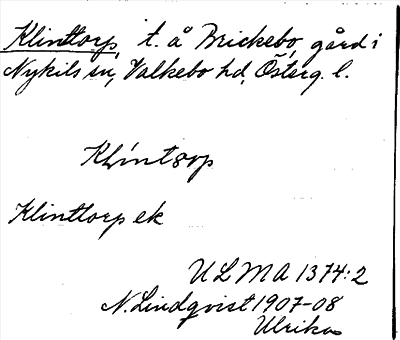 Klinttorp, t. å Brickebo, gård i
Nykils sn, Valkebo hd, Österg. l.
Klintorp
Klinttorp ek
ULMA 1374:2
N. Lindqvist 1907-08
Ulrika